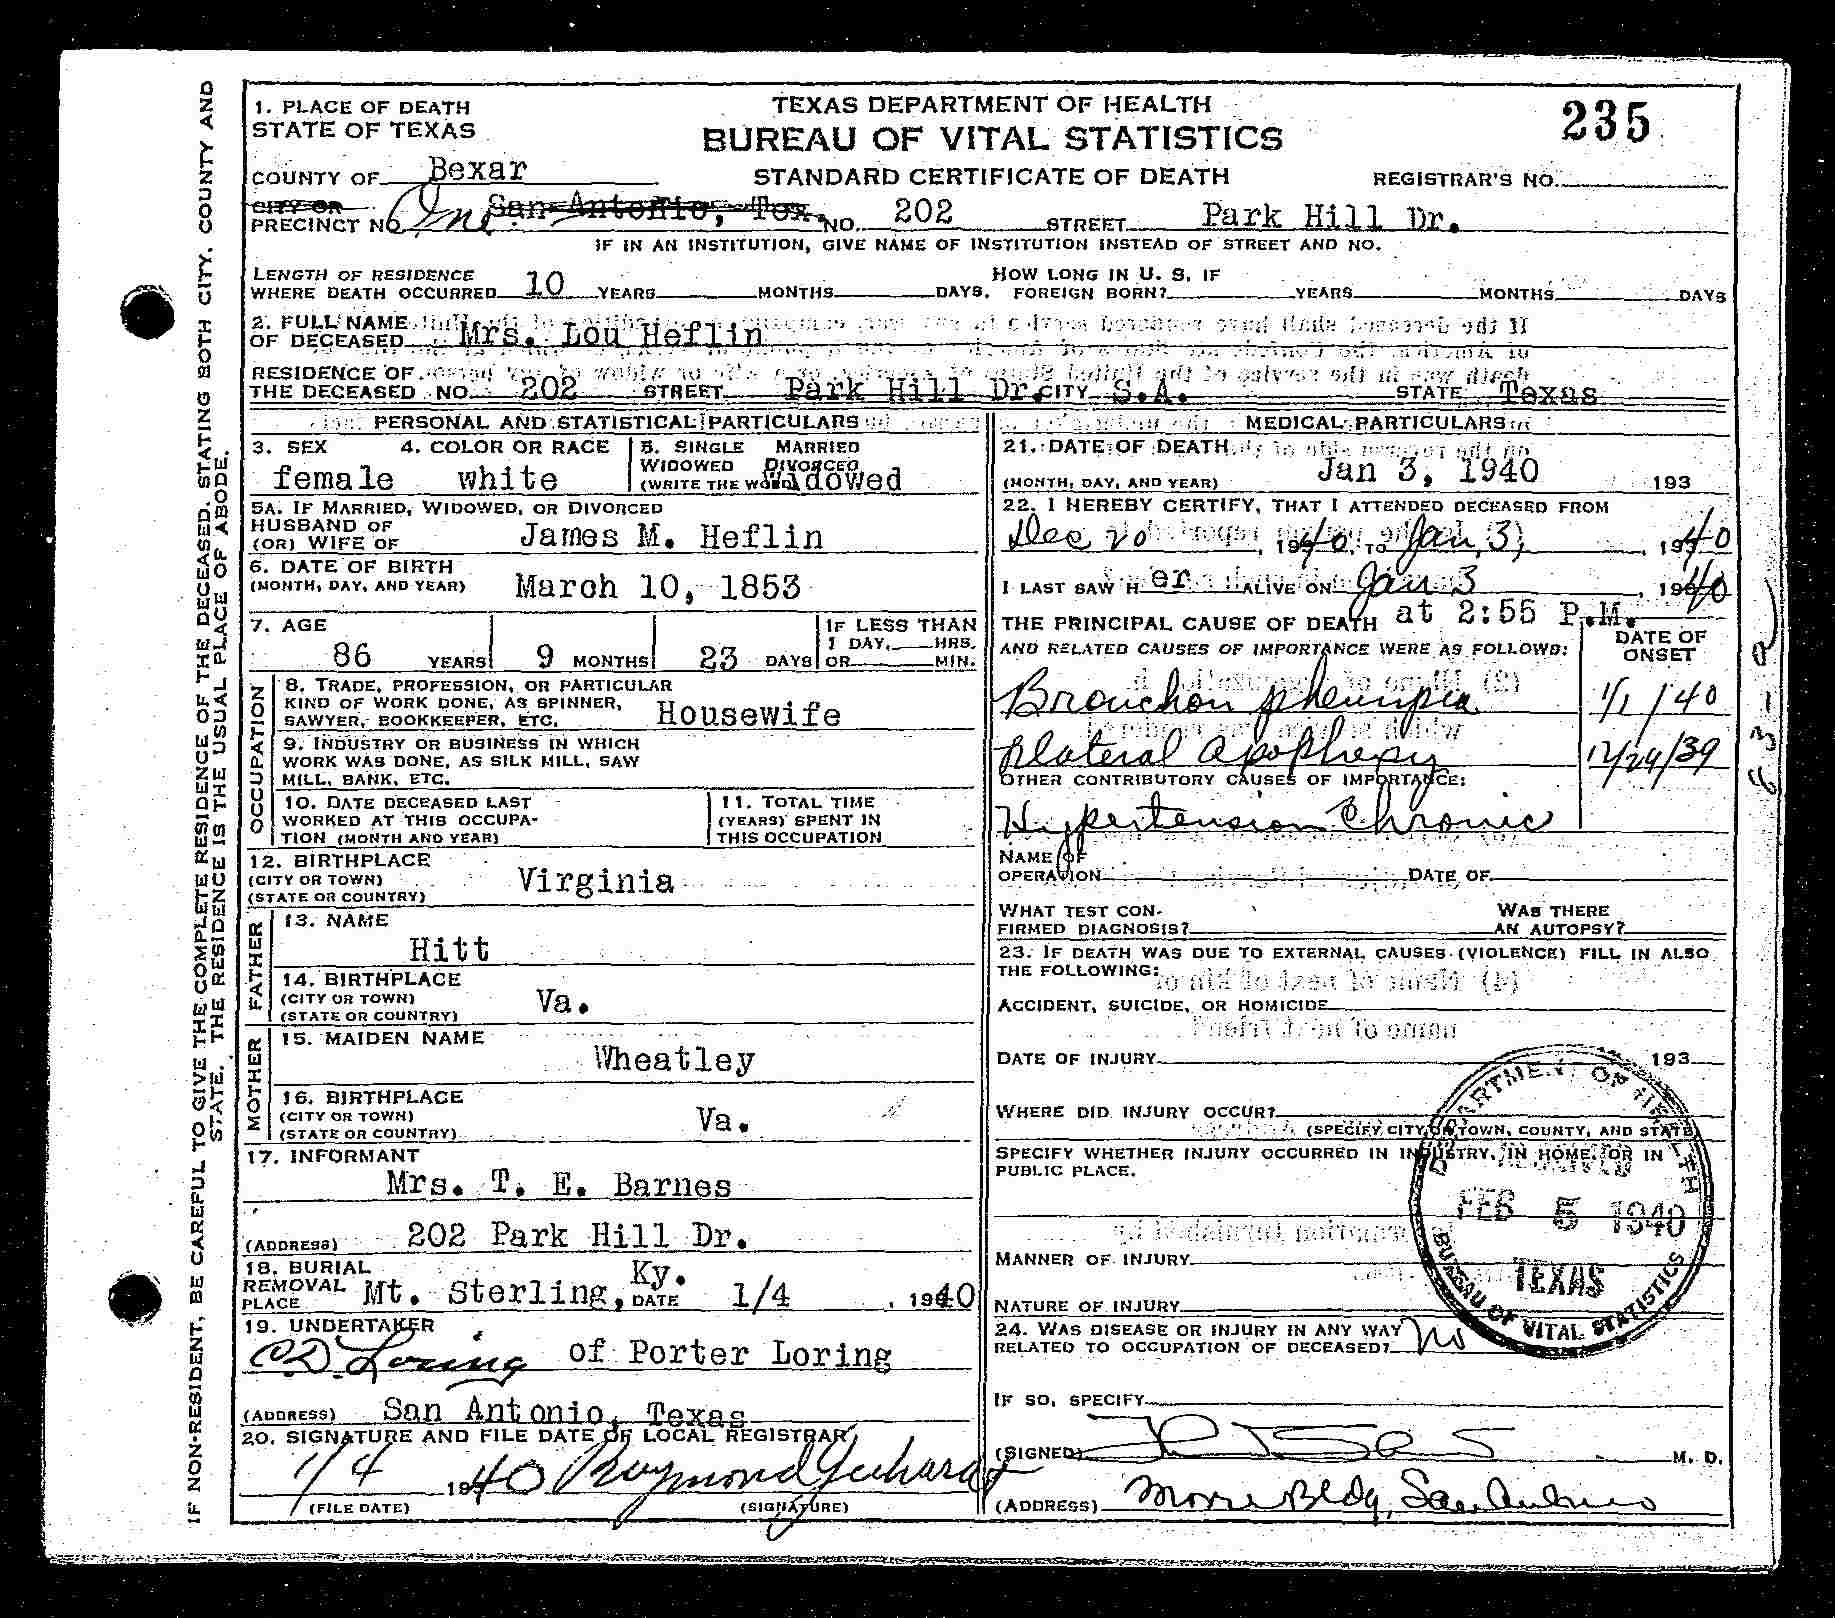 IF NON-RESIDENT, BE CAREFUL TO GIVE THE COMPLETE RESIDENCE OF THE DECEASED, STATING BOTH CITY, COUNTY AND
STATE. THE RESIDENCE IS THE USUAL PLACE OF ABODE.
TEXAS DEPARTMENT OF HEALTH
BUREAU OF VITAL STATISTICS
STANDARD CERTIFICATE OF DEATH
235
REGISTRAR'S NO.
1. PLACE OF DEATH
STATE OF TEXAS
COUNTY OF Bexar
CITY OR San Antonio, Tex.
PRECINCT NO One NO. 202 STREET Park Hill Dr.
IF IN AN INSTITUTION, GIVE NAME OF INSTITUTION INSTEAD OF STREET AND NO.
LENGTH OF RESIDENCE HOW LONG IN U. S. IF
WHERE DEATH OCCURRED 10 YEARS MONTHS DAYS. FOREIGN BORN? YEARS MONTHS DAYS
2. FULL NAME
OF DECEASED Mrs. Lou Heflin
RESIDENCE OF
THE DECEASED NO. 202 STREET Park Hill Dr. CITY S.A. STATE Texas
PERSONAL AND STATISTICAL PARTICULARS
3. SEX 4. COLOR OR RACE 5. SINGLE MARRIED
WIDOWED DIVORCED
female white (WRITE THE WORD) Widowed
5A. IF MARRIED, WIDOWED, OR DIVORCED
HUSBAND OF
(OR) WIFE OF James M. Heflin
6. DATE OF BIRTH
(MONTH, DAY, AND YEAR) March 10, 1853
7. AGE IF LESS THAN
1 DAY, HRS.
86 YEARS 9 MONTHS 23 DAYS OR MIN.
OCCUPATION
8. TRADE, PROFESSION, OR PARTICULAR
KIND OF WORK DONE, AS SPINNER,
SAWYER, BOOKKEEPER, ETC. Housewife
9. INDUSTRY OR BUSINESS IN WHICH
WORK WAS DONE, AS SILK MILL, SAW
MILL, BANK, ETC.
10. DATE DECEASED LAST 11. TOTAL TIME
WORKED AT THIS OCCUPA- (YEARS) SPENT IN
TION (MONTH AND YEAR) THIS OCCUPATION
12. BIRTHPLACE
(CITY OR TOWN)
(STATE OR COUNTRY) Virginia
FATHER
13. NAME
Hitt
14. BIRTHPLACE
(CITY OR TOWN)
(STATE OR COUNTRY) Va.
MOTHER
15. MAIDEN NAME
Wheatley
16. BIRTHPLACE
(CITY OR TOWN)
(STATE OR COUNTRY) Va.
17. INFORMANT
Mrs. T. E. Barnes
(ADDRESS) 202 Park Hill Dr.
18. BURIAL
REMOVAL
PLACE Mt. Sterling, Ky. DATE 1/4, 1940
19. UNDERTAKER
C.D. Loring of Porter Loring
(ADDRESS) San Antonio, Texas
20. SIGNATURE AND FILE DATE OF LOCAL REGISTRAR
1/4 1940 Raymond
(FILE DATE) (SIGNATURE)
MEDICAL PARTICULARS
21. DATE OF DEATH
(MONTH, DAY, AND YEAR) Jan 3, 1940 193
22. I HEREBY CERTIFY, THAT I ATTENDED DECEASED FROM
Dec 20, 1940, TO Jan, 3, 1940
I LAST SAW H er ALIVE ON Jan 3, 1940
THE PRINCIPAL CAUSE OF DEATH at 2:55 P.M.
AND RELATED CAUSES OF IMPORTANCE WERE AS FOLLOWS: DATE OF
ONSET
1/1/40
apoplexy 12/24/39
OTHER CONTRIBUTORY CAUSES OF IMPORTANCE:
Hypertension Chronic
NAME OF
OPERATION DATE OF
WHAT TEST CON- WAS THERE
FIRMED DIAGNOSIS? AN AUTOPSY?
23. IF DEATH WAS DUE TO EXTERNAL CAUSES (VIOLENCE) FILL IN ALSO
THE FOLLOWING:
ACCIDENT, SUICIDE, OR HOMICIDE
DATE OF INJURY 193
WHERE DID INJURY OCCUR?
(SPECIFY CITY OR TOWN, COUNTY, AND STATE)
SPECIFY WHETHER INJURY OCCURRED IN INDUSTRY, IN HOME, OR IN
PUBLIC PLACE.
MANNER OF INJURY
NATURE OF INJURY
24. WAS DISEASE OR INJURY IN ANY WAY
RELATED TO OCCUPATION OF DECEASED? No
IF SO, SPECIFY
(SIGNED) M. D.
(ADDRESS) Moore Bldg, San Antonio
DEPARTMENT OF HEALTH
RECEIVED
FEB 5 1940
TEXAS
BUREAU OF VITAL STATISTICS